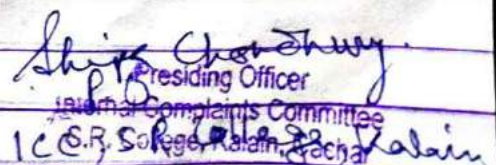 Shipra Chowdhury.
Presiding Officer
Internal Complaints Committee
S.R. College, Kalain, Cachar
ICC, S.R. College Kalain